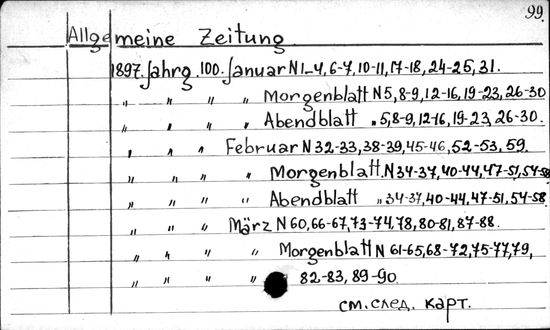 99.
Allgemeine Zeitung.
1897. Jahrg. 100. Januar N 1-4, 6-7, 10-11, 17-18, 24-25, 31.
" " " Morgenblatt N 5, 8-9, 12-16, 19-23, 26-30
" " " Abendblatt " 5, 8-9, 12-16, 19-23, 26-30.
" " " Februar N 32-33, 38-39, 45-46, 52-53, 59.
" " " " Morgenblatt. N 34-37, 40-44, 47-51, 54-58
" " " " Abendblatt " 34-37, 40-44, 47-51, 54-58.
" " " März N 60, 66-67, 73-74, 78, 80-81, 87-88.
" " " " Morgenblatt N 61-65, 68-72, 75-77, 79,
" " " " 82-83, 89-90.
см. след. карт.